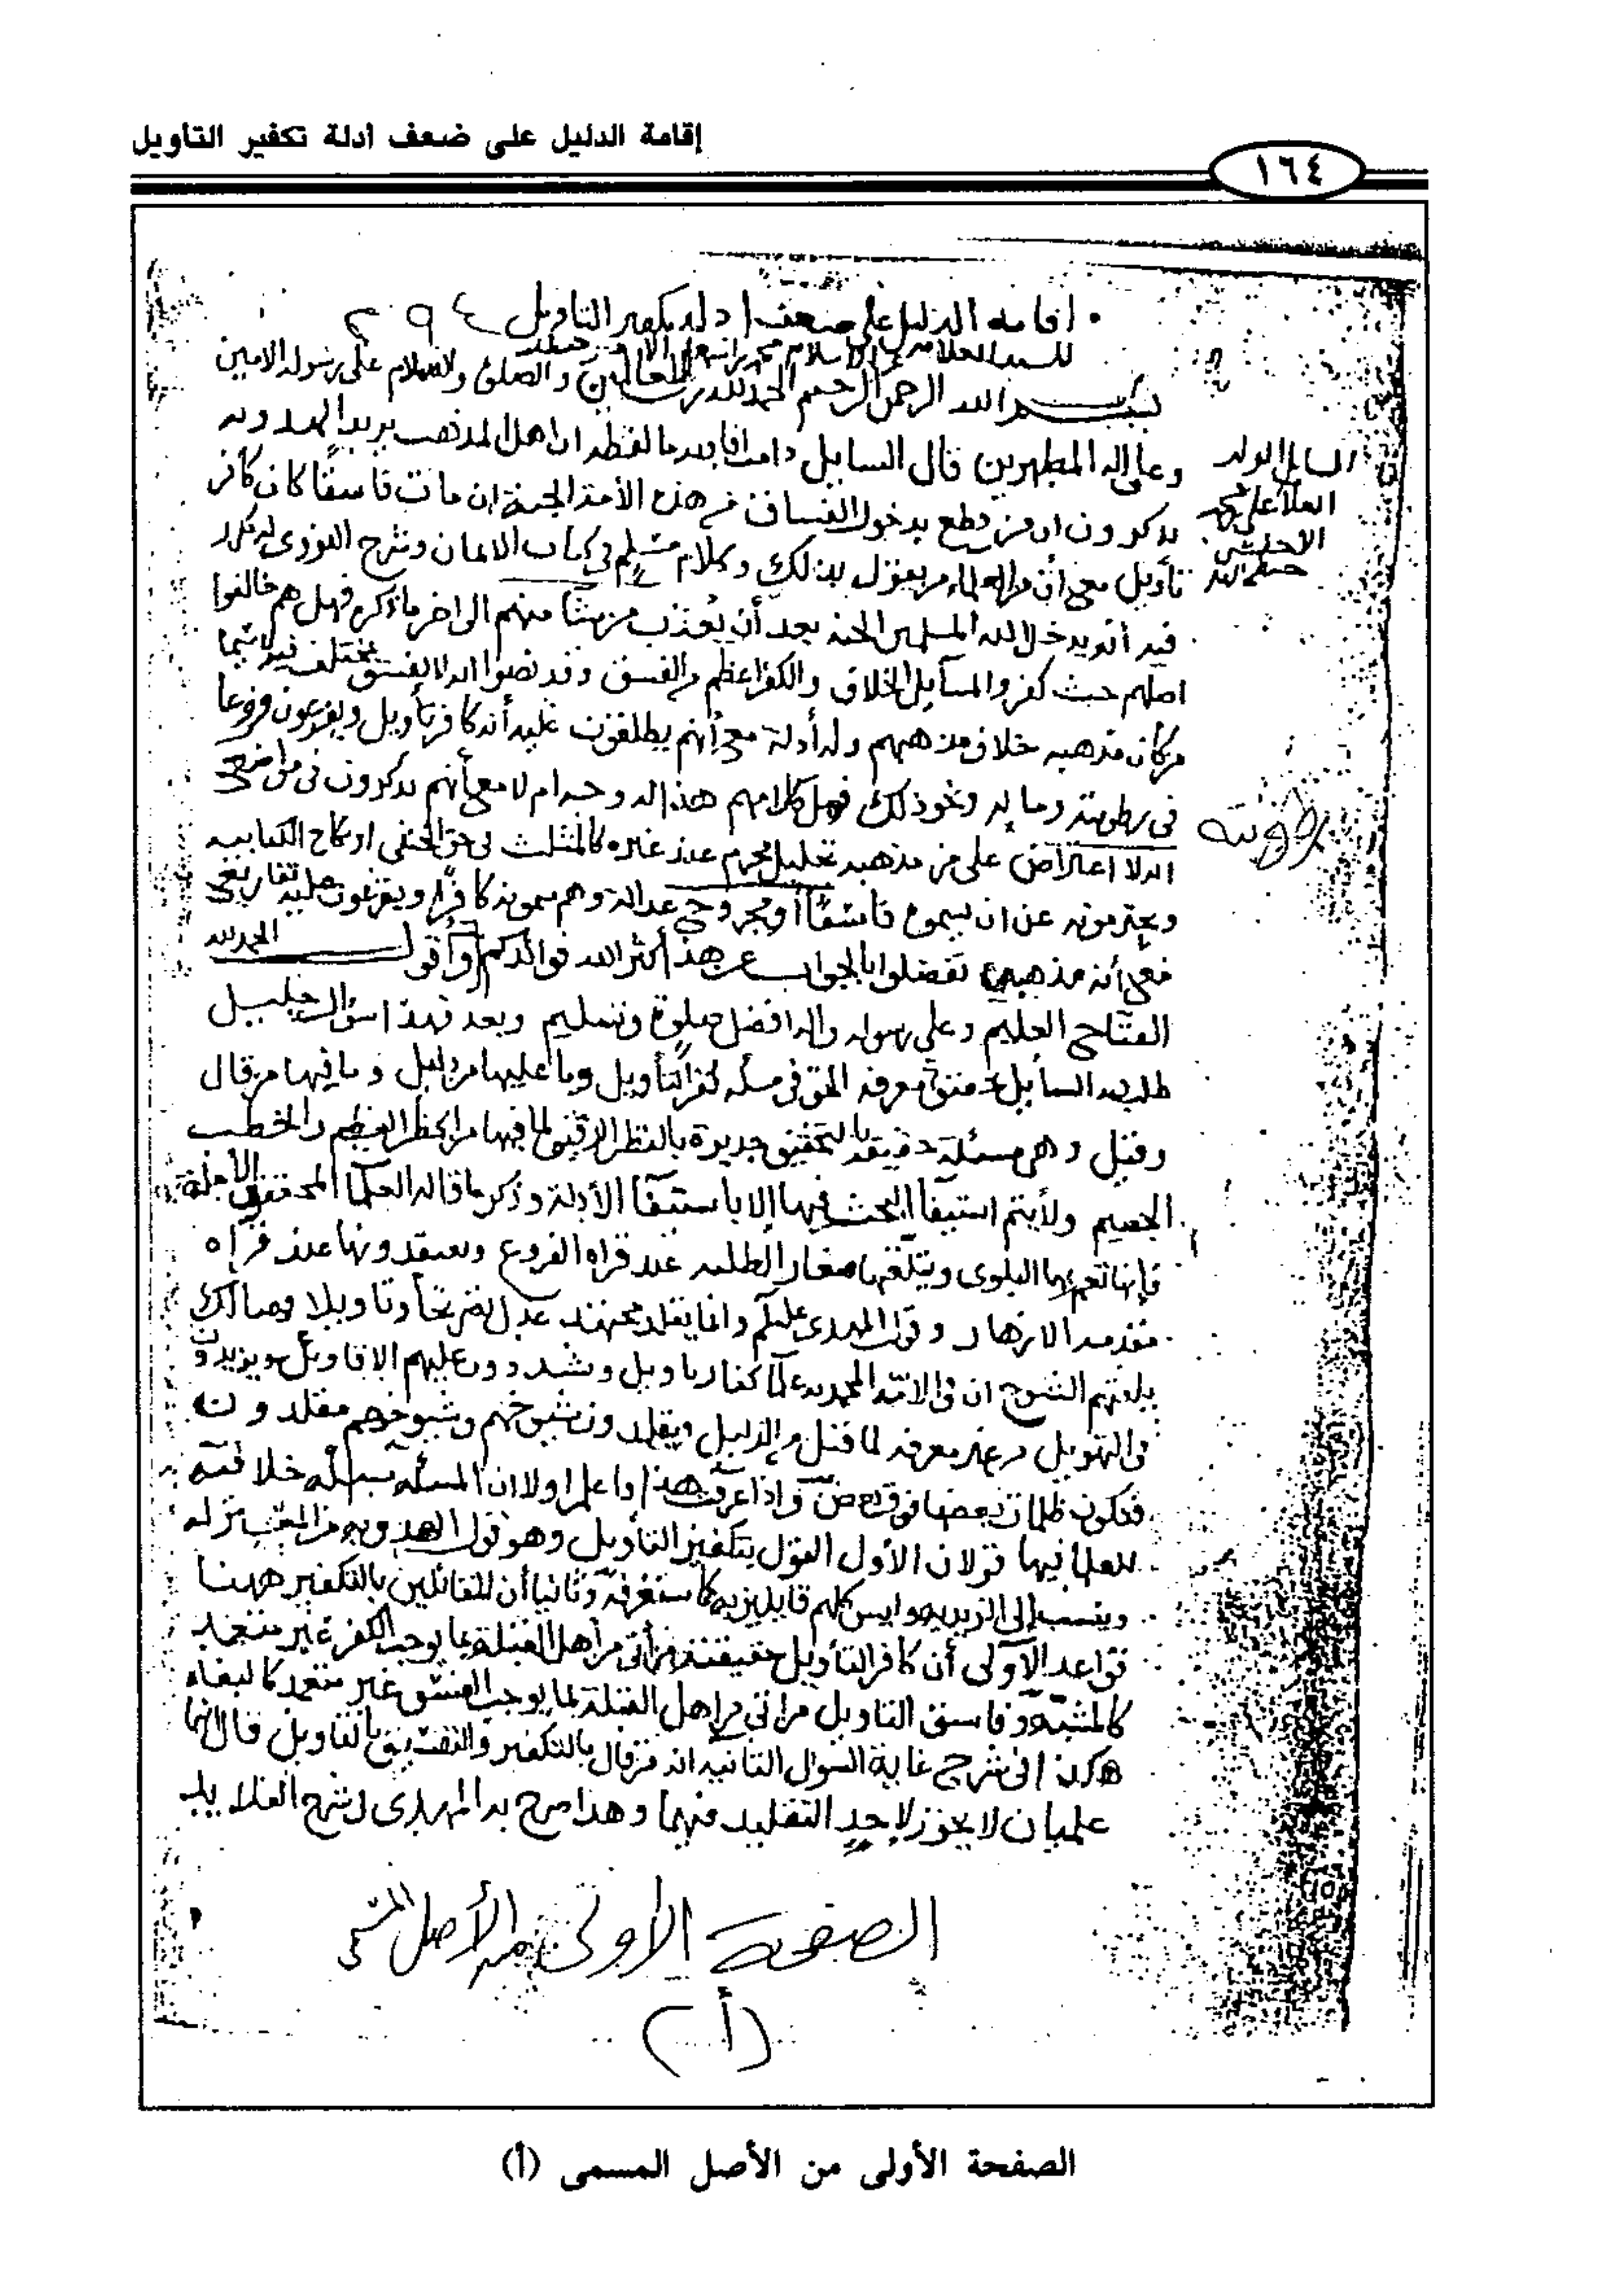 إقامة الدليل على ضعف أدلة تكفير التأويل
١٦٤
اقامة الدليل على ضعف ادلة تكفير التاويل ٢٩٤
للسيد العلامة الاسلام محمد
بسم الله الرحمن الرحيم الحمد لله رب العالمين والصلاة والسلام على رسوله الامين
وعلى اله المطهرين قال السايل دامت افاد ته ما لفظه ان اهل المذهب يريد الهدويه
يذكرون ان من قطع بدخول الفساق من هذه الأمة الجنة ان مات فاسقا كان كافر
تأويل مع أن من العلماء من يقول بذلك وكلام مسلم في كتاب الايمان وشرح النووي له
فيه انه يدخل الله المسلمين الجنة بعد أن يعذب من شا منهم الى اخر ما ذكره فهل هم خالفوا
اصلهم حيث كفروا المسايل الخلاف والكفر اعظم من الفسق وقد نصوا انه لا يفسق بمختلف فيه لا سيما
من كان مذهبه خلاف مذهبهم وله أدلة مع أنهم يطلقون عليه أنه كافر تأويل ويفرعون فروعا
في رطوبته وماله ونحو ذلك فهل كلامهم هذا له وجه ام لا مع أنهم يذكرون في مواضع
انه لا اعتراض على من مذهبه تحليل محرم عند غيره كالمثلث في حق الحنفي او نكاح الكتابيه
ويحترمونه عن ان يسموه فاسقا أو مجروح عدالة وهم يسمونه كافرا ويفرعون عليه تفاريع
مع أنه مذهبه تفضلوا بالجواب عن هذا كثر الله فوائدكم وأقول الحمد لله
الفتاح العليم وعلى رسوله واله افضل صلوة وتسليم وبعد فهذا سؤال جليل
طلب به السايل معرفة الحق في مسئلة كفر التأويل وما عليها من دليل وما فيها من قال
وقيل وهي مسئلة دقيقة بالتحقيق جديرة بالنظر الدقيق لما فيها من الخطر العظيم والخطب
الجسيم ولا يتم استيفا البحث فيها إلا باستيفا الأدلة وذكر ما قاله العلما المحققون الأجلة
فإنها تعم بها البلوى ويتلقنها صغار الطلبه عند قراة الفروع ويعتقدونها عند قراة
مقدمة الازهار وقول المهدي عليلم وانما يقلد مجتهد عدل تصريحا وتاويلا وهنالك
يلقنهم الشيوخ ان في الائمة المحمديه عالما كفار تاويل ويشددون عليهم الاقاويل ويزيدون
في التهويل من غير معرفه لما قيل من الدليل ويقلدون شيوخهم وشيوخهم مقلدون
فتكون ظلمات بعضها فوق بعض واذا عرفت هذا فاعلم اولا ان المسئلة مسئلة خلافية
للعلما فيها قولان الأول القول بتكفير التأويل وهو قول الهدويه والمعتزله
وينسب إلى الزيديه وليس كلهم قايلين به كما ستعرفه وثانيا أن للقائلين بالتكفير ههنا
قواعد الأولى أن كافر التأويل حقيقته من أتى من أهل القبلة بما يوجب الكفر غير متعمد
كالمشبهه وفاسق التاويل من اتى من اهل القبلة بما يوجب الفسق غير متعمد كالبغاه
هكذا في شرح غاية السول الثانيه انه من قال بالتكفير والتفسيق بالتاويل قال انهما
علميان لا يجوز لاحد التقليد فيهما وهذا صرح به المهدي في شرح القلايد
السايل الولد
العلامة علي
رطوبته
الصفحة الأولى من الأصل المسمى
(أ)
الصفحة الأولى من الأصل المسمى (أ)